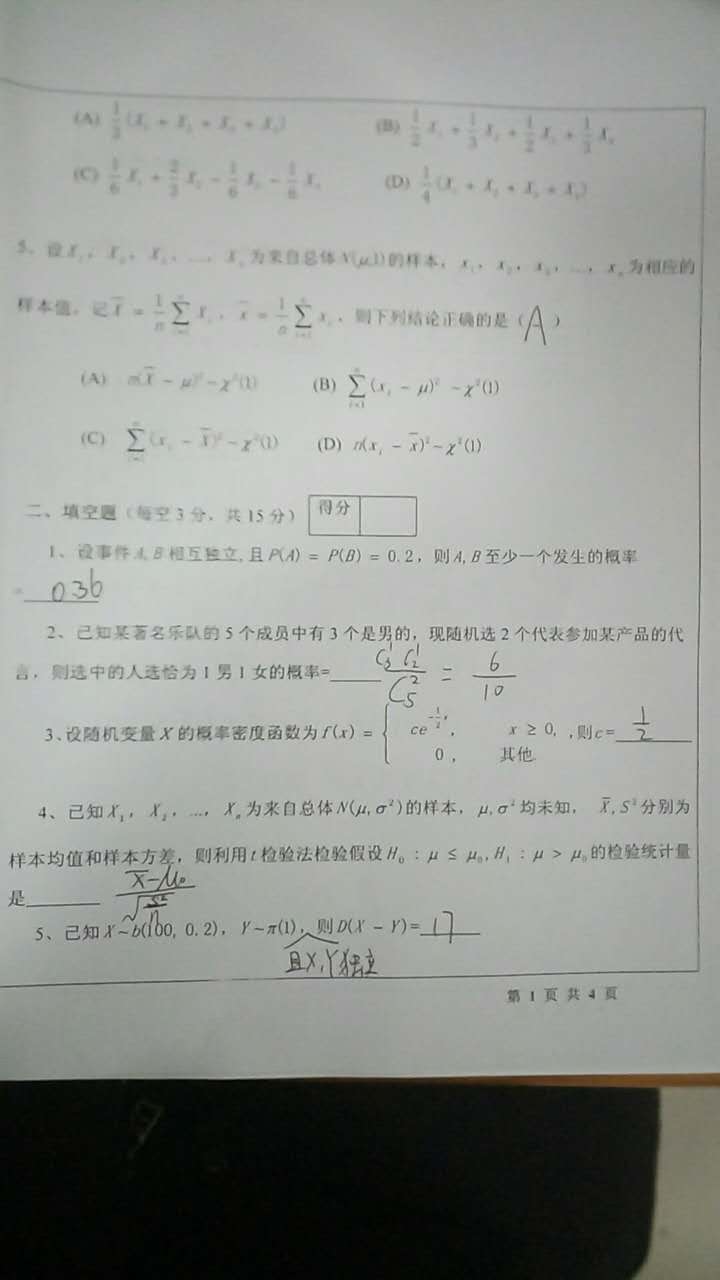 (A) 1/3 (X₁ + X₂ + X₃ + X₄) (B) 1/2 X₁ + 1/3 X₂ + 1/2 X₃ + 1/3 X₄
(C) 1/6 X₁ + 2/3 X₂ - 1/6 X₃ - 1/6 X₄ (D) 1/4 (X₁ + X₂ + X₃ + X₄)
5、设X₁, X₂, X₃, …, Xₙ为来自总体N(μ,1)的样本, x₁, x₂, x₃, …, xₙ为相应的
样本值, 记X̄ = 1/n ∑ Xᵢ, x̄ = 1/n ∑ xᵢ, 则下列结论正确的是 ( A )
(A) n(X̄ - μ)² ~ χ²(1) (B) ∑ (xᵢ - μ)² ~ χ²(1)
(C) ∑ (xᵢ - X̄)² ~ χ²(1) (D) n(xᵢ - x̄)² ~ χ²(1)
二、填空题 (每空3分, 共15分) 得分
1、设事件A, B相互独立, 且P(A) = P(B) = 0.2, 则A, B至少一个发生的概率
= 036
2、已知某著名乐队的5个成员中有3个是男的, 现随机选2个代表参加某产品的代
言, 则选中的人选恰为1男1女的概率= C₃¹ C₂¹ / C₅² = 6/10
3、设随机变量X的概率密度函数为f(x) = { ce^(-1/2 x), x ≥ 0, , 则c= 1/2
0, 其他.
4、已知X₁, X₂, …, Xₙ为来自总体N(μ, σ²)的样本, μ, σ²均未知, X̄, S²分别为
样本均值和样本方差, 则利用t检验法检验假设H₀ : μ ≤ μ₀, H₁ : μ > μ₀的检验统计量
是 (X̄-μ₀) / √(S²/n)
5、已知X~b(100, 0.2), Y~π(1), 则D(X - Y)= 17
且X,Y独立
第 1 页 共 4 页